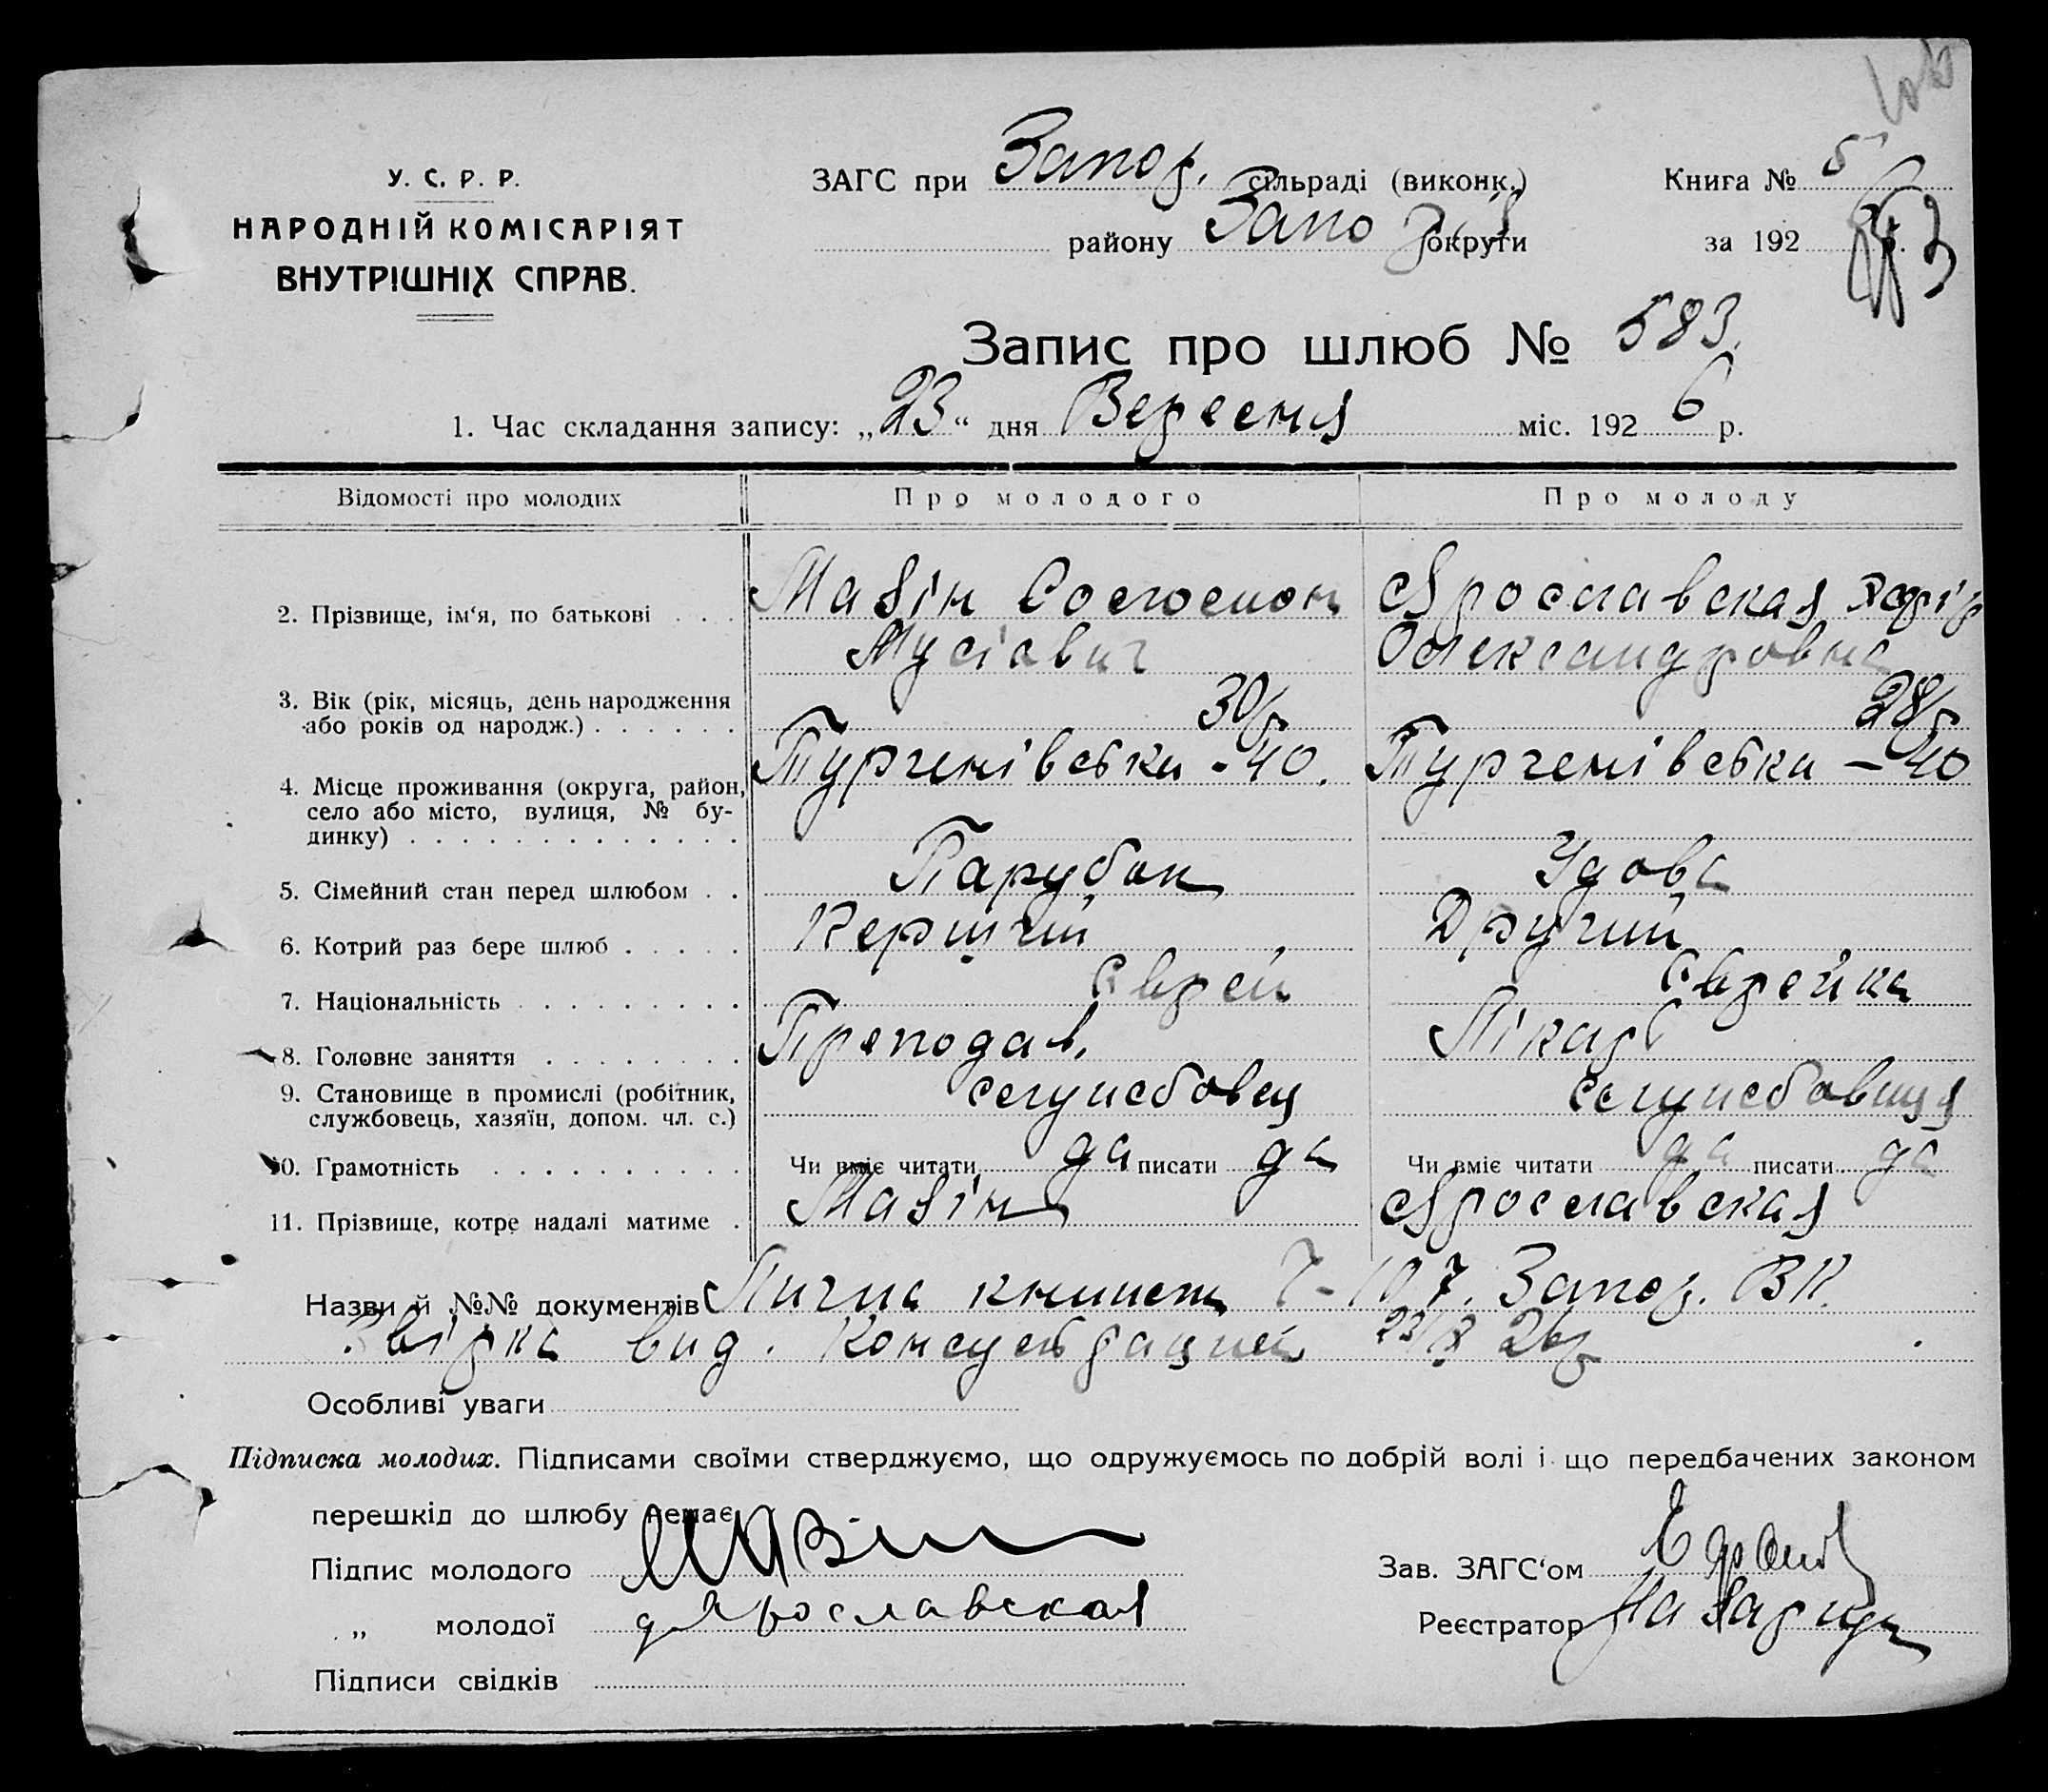 У. С. Р. Р.
НАРОДНІЙ КОМІСАРІЯТ
ВНУТРІШНІХ СПРАВ.
ЗАГС при Запор. сільраді (виконк.) Книга № 5
району Запо округи за 192 р.
583
Запис про шлюб № 583.
1. Час складання запису: „23“ дня Вересня міс. 1926 р.
Відомості про молодих Про молодого Про молоду
2. Прізвище, ім‘я, по батькові Мазін Соломон Ярославская
Мусієвич Олександровна
3. Вік (рік, місяць, день народження
або років од народж.) 30 р. 28 р.
4. Місце проживання (округа, район,
село або місто, вулиця, № бу-
динку) Тургенівська - 40. Тургенівська - 40
5. Сімейний стан перед шлюбом Парубок Удова
6. Котрий раз бере шлюб Перший Другий
7. Національність Єврей Єврейка
8. Головне заняття Преподав. Лікарь
9. Становище в промислі (робітник,
службовець, хазяїн, допом. чл. с.) службовец службовиця
10. Грамотність Чи вміє читати да писати да Чи вміє читати да писати да
11. Прізвище, котре надалі матиме Мазін Ярославская
Назви й №№ документів Лична книжка 107. Запор. ВК.
вид. Консультацией 23/ 26 р
Особливі уваги
Підписка молодих. Підписами своїми стверджуємо, що одружуємось по добрій волі і що передбачених законом
перешкід до шлюбу немає
Підпис молодого Мазін
„ молодої Ярославская
Зав. ЗАГС‘ом
Реєстратор
Підписи свідків